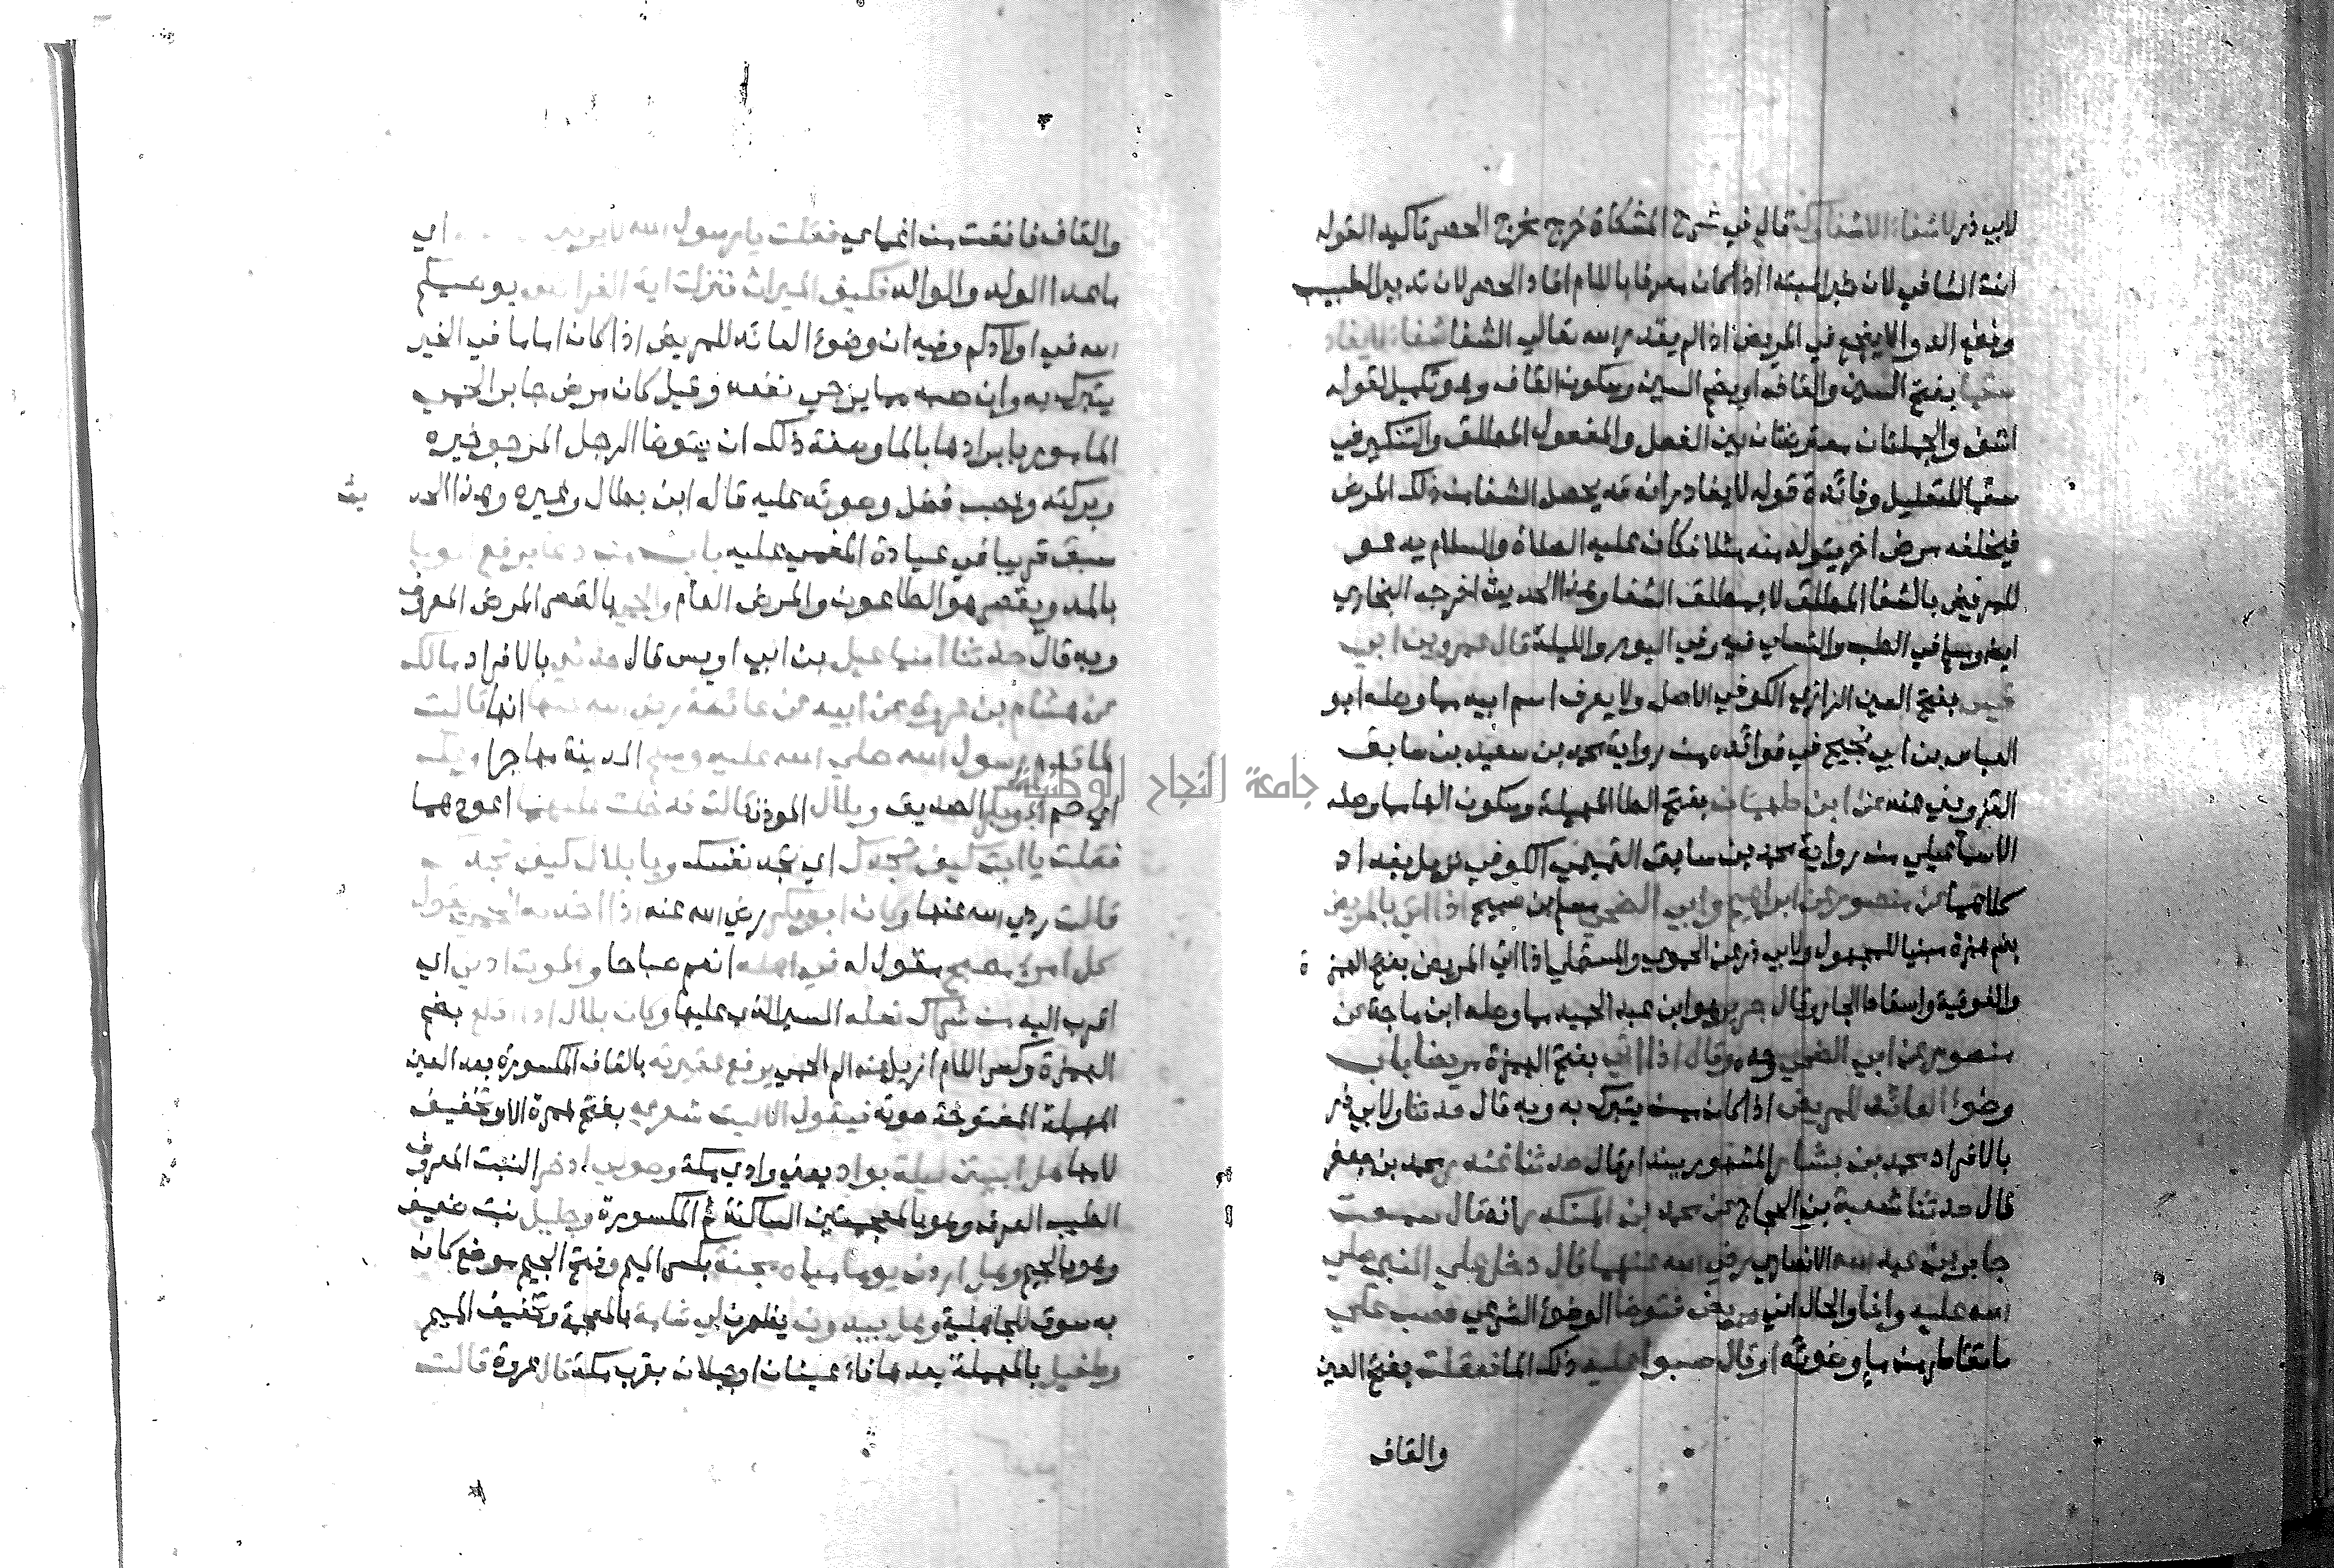 لابي ذر لاشفاء الاشفاوك قال في شرح المشكاة خرج مخرج الحصر تاكيد القوله
انت الشافي لان خبر المبتدا اذا كان معرفا باللام افاد الحصر لان تدبير الطبيب
ونفع الدوا لا ينجع في المريض اذا لم يقدر الله تعالي الشفا شفاء لا يغادر
سقما بفتح السين والقاف او بضم السين وسكون القاف وهو تكميل لقوله
اشف والجملتان معترضتان بين الفعل والمفعول المطلق والتنكير في
سقما للتقليل وفائدة قوله لا يغادر انه قد يحصل الشفا من ذلك المرض
فيخلفه مرض اخر يتولد منه مثلا فكان عليه الصلاة والسلام يدعو
للمريض بالشفا المطلق لا بمطلق الشفا وهذا الحديث اخرجه البخاري
ايضا ومسلم في الطب والنساي فيه وفي اليوم والليلة قال عمرو بن ابي
قيس بفتح العين الرازي الكوفي الاصل ولا يعرف اسم ابيه مما وصله ابو
العباس بن ابي نجيح في فوائده من رواية محمد بن سعيد بن سابق
القزويني عنه عن ابن طهمان بفتح الطا المهملة وسكون الها مما وصله
الاسماعيلي من رواية محمد بن سابق التميمي الكوفي نزيل بغداد
كلاهما عن منصور عن ابراهيم وابي الضحي مسلم بن صبيح اذا اتي بالمريض
بضم همزة مبنيا للمجهول ولابي ذر عن الحموي والمستملي اذا اتي المريض بفتح الهمزة
والفوقية واسقاط الجار وقال جرير هو ابن عبد الحميد مما وصله ابن ماجة عن
منصور عن ابي الضحي وحده وقال اذا اتي بفتح الهمزة مريضا باب
وضوء العائد للمريض اذا كان ممن يتبرك به وبه قال حدثنا ولابي ذر
بالافراد محمد بن بشار المشهور ببندار قال حدثنا غندر محمد بن جعفر
قال حدثنا شعبة بن الحجاج عن محمد بن المنكدر انه قال سمعت
جابر بن عبد الله الانصاري رضي الله عنهما قال دخل علي النبي صلي
الله عليه وانا والحال اني مريض فتوضا الوضوء الشرعي فصب علي
ما تقاطر من ماء وضوئه او قال صبوا عليه ذلك الما فعقلت بفتح العين
والقاف
والقاف فافقت من اغماي فقلت يا رسول الله لا يرثني اي
ما عدا الولد والوالد فكيف الميراث فنزلت اية الفرائض يوصيكم
الله في اولادكم وفيه ان وضوء العائد للمريض اذا كان اماما في الخير
يتبرك به وان صبه مما يرجي نفعه وقيل كان مرض جابر الحمي
المامور بابرادها بالما وصفة ذلك ان يتوضا الرجل المرجو خيره
وبركته ويصب فضل وضوئه عليه قاله ابن بطال وغيره وهذا الحديث
سبق قريبا في عيادة المغمي عليه باب من دعا برفع الوبا
بالمد ويقصر هو الطاعون والمرض العام والحمي بالقصر المرض المعروف
وبه قال حدثنا اسماعيل بن ابي اويس قال حدثني بالافراد مالك
عن هشام بن عروة عن ابيه عن عائشة رضي الله عنها انها قالت
لما قدم رسول الله صلي الله عليه وسلم المدينة مهاجرا وعك
اي حم ابو بكر الصديق وبلال الموذن قالت فدخلت عليهما اعودهما
فقلت يا ابت كيف تجدك اي تجد نفسك ويا بلال كيف تجدك
قالت رضي الله عنها وكان ابو بكر رضي الله عنه اذا اخذته الحمي يقول
كل امرء مصبح مقول له في اهله انعم صباحا والموت ادني اي
اقرب اليه من شراك نعله السير الذي عليها وكان بلال اذا اقلع بضم
الهمزة وكسر اللام ازيل عنه الم الحمي يرفع عقيرته بالقاف المكسورة بعد العين
المهملة المفتوحة صوته فيقول الا ليت شعري بفتح همزة الا وتخفيف
لامها هل ابيتن ليلة بواد يعني وادي مكة وحولي اذخر النبت المعروف
الطيب العرف وهو بالمعجمتين الساكنة ثم المكسورة وجليل نبت ضعيف
وهو بالجيم وهل اردن يوما مياه مجنة بكسر الميم وفتح الجيم موضع كان
به سوق للجاهلية وهل يبدون يظهرن لي شامة بالمعجمة وتخفيف الميم
وطفيل بالمهملة بعدها فاء عينان او جبلان بقرب مكة قال عروة قالت
جامعة النجاح الوطنية